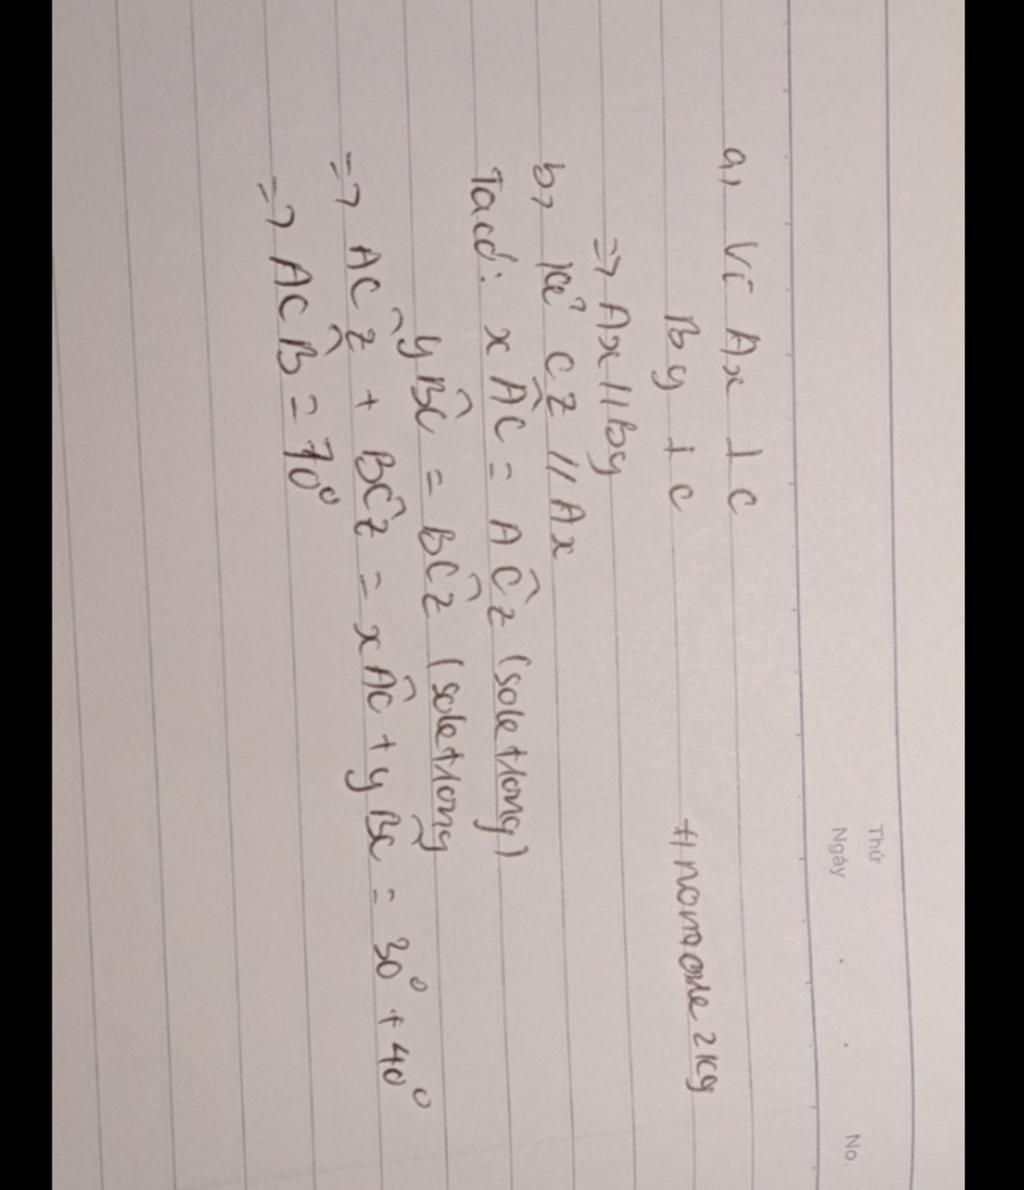 Thứ
Ngày . . No.
a, Vì Ax ⊥ c
By ⊥ c #nomoone2k9
=> Ax // By
b, Kẻ Cz // Ax
Ta có: xÂC = AĈz (so le trong)
yB̂C = BĈz (so le trong
=> AĈz + BĈz = xÂC + yB̂C = 30° + 40°
=> AĈB = 70°